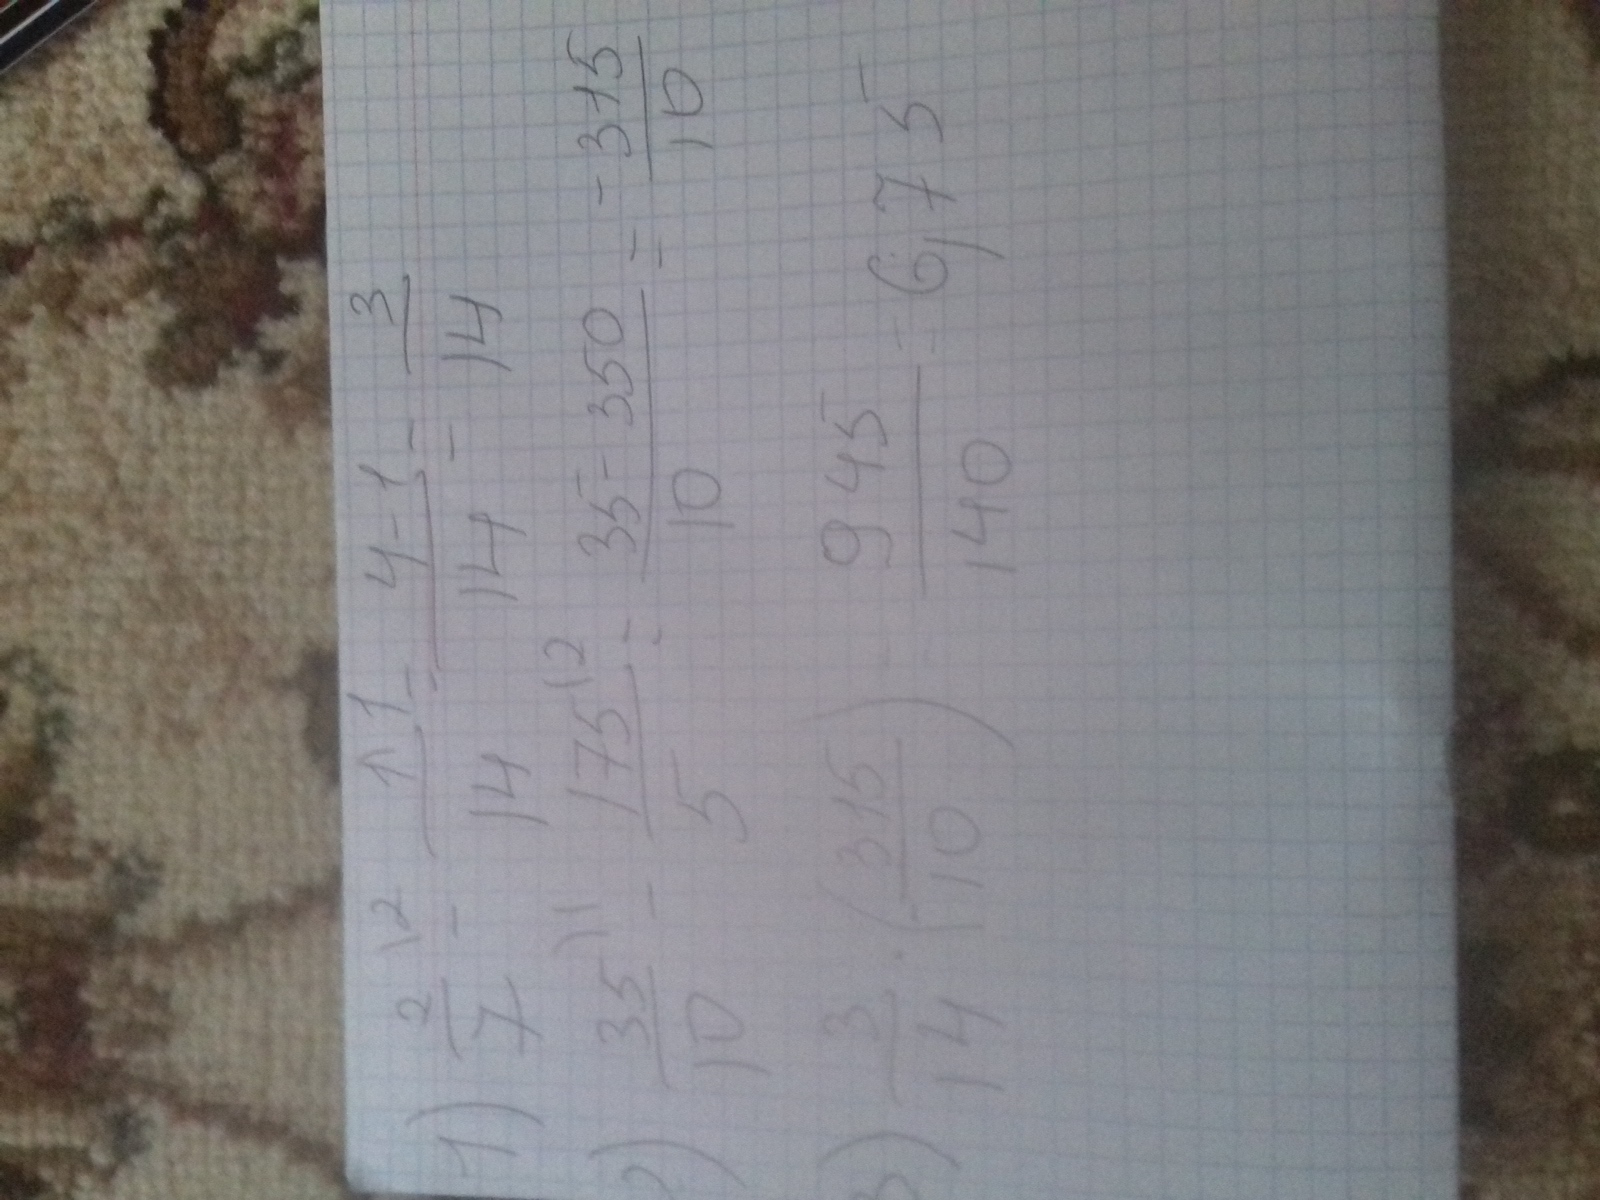 1) 2/7 \2 - 1\1/14 = 4-1/14 = 3/14
2) 35/10 \1 - 175/5 \2 = 35-350/10 = -315/10
3) 3/14 · (-315/10) = 945/140 = 6,75